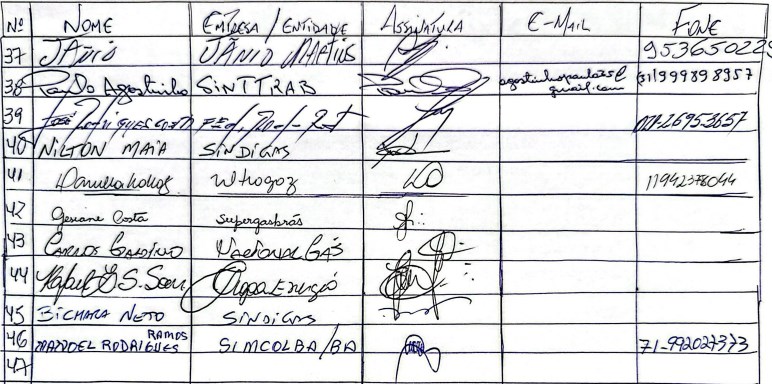 Nº NOME EMPRESA / ENTIDADE ASSINATURA E-MAIL FONE
37 JÂNIO JÂNIO MARTINS 953650229
38 Paulo Agostinho SINTTRAB agostinhopaulo25@gmail.com (31)999898957
39 José
40 NILTON MAIA SINDIGAS
41 Daniella 11942378044
42 Gesiane Costa Supergasbrás
43 CARLOS GALDINO NACIONAL GÁS
44 Rafael S. Copa Energia
45 BICHARA NETO SINDIGAS
46 MANOEL RODRIGUES RAMOS SIMCOLBA/BA 71-992027373
47